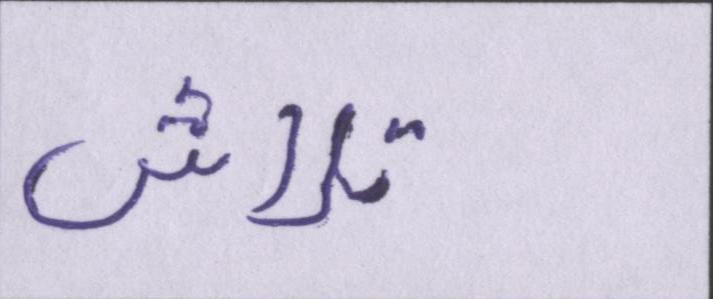 تلاش